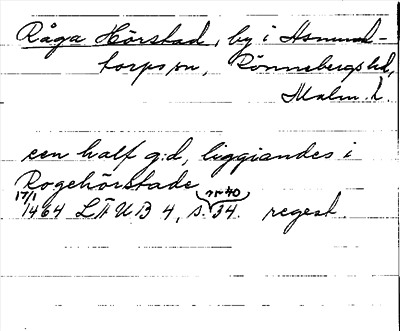 Råga Hörstad, by i Asmund-
torps sn, Rönnebergs hd,
Malm. l.
een half g:d, liggiandes i
Rogehörstade
nr 40
17/1
1464 LÄUB 4, s. 34. regest.